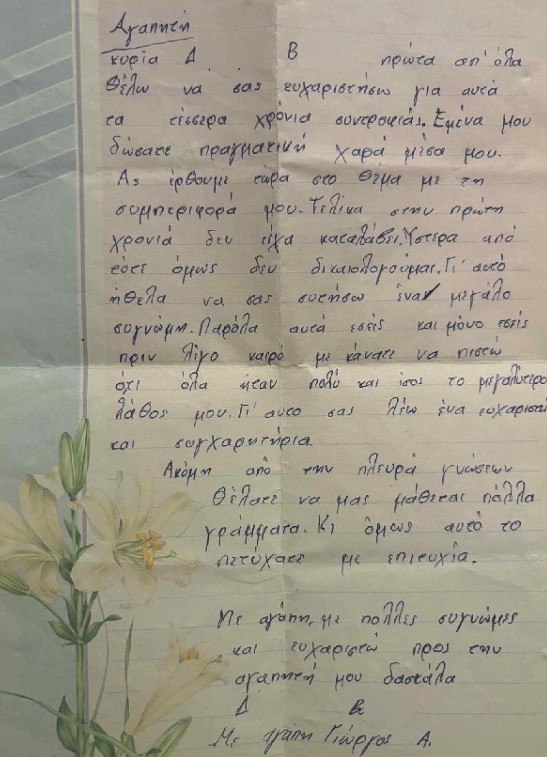 Αγαπητή
κυρία Δ. Β πρώτα απ' όλα
θέλω να σας ευχαριστήσω για αυτά
τα τέσσερα χρόνια συντροφιάς. Εμένα μου
δώσατε πραγματική χαρά μέσα μου.
Ας έρθουμε τώρα στο θέμα με τη
συμπεριφορά μου. Τελικα στην πρώτη
χρονιά δεν είχα καταλάβει. Ύστερα από
τότε όμως δεν δικαιολογούμαι. Γι' αυτό
ήθελα να σας ζητήσω ένα μεγάλο
συγνώμη. Παρόλα αυτά εσείς και μόνο εσείς
πριν λίγο καιρό με κάνατε να πιστώ
ότι όλα ήταν πολύ και ίσος το μεγαλύτερο
λάθος μου. Γι' αυτο σας λέω ένα ευχαριστώ
και συγχαρητήρια.
Ακόμη από την πλευρά γνώσεων
Θέλατε να μας μάθεται πόλλα
γράμματα. Κι όμως αυτό το
πετύχατε με επιτυχία.
Με αγάπη, με πολλες συγνώμες
και ευχαριστώ προς την
αγαπητή μου δασκάλα
Δ Β
Με αγάπη Γιώργος Α.